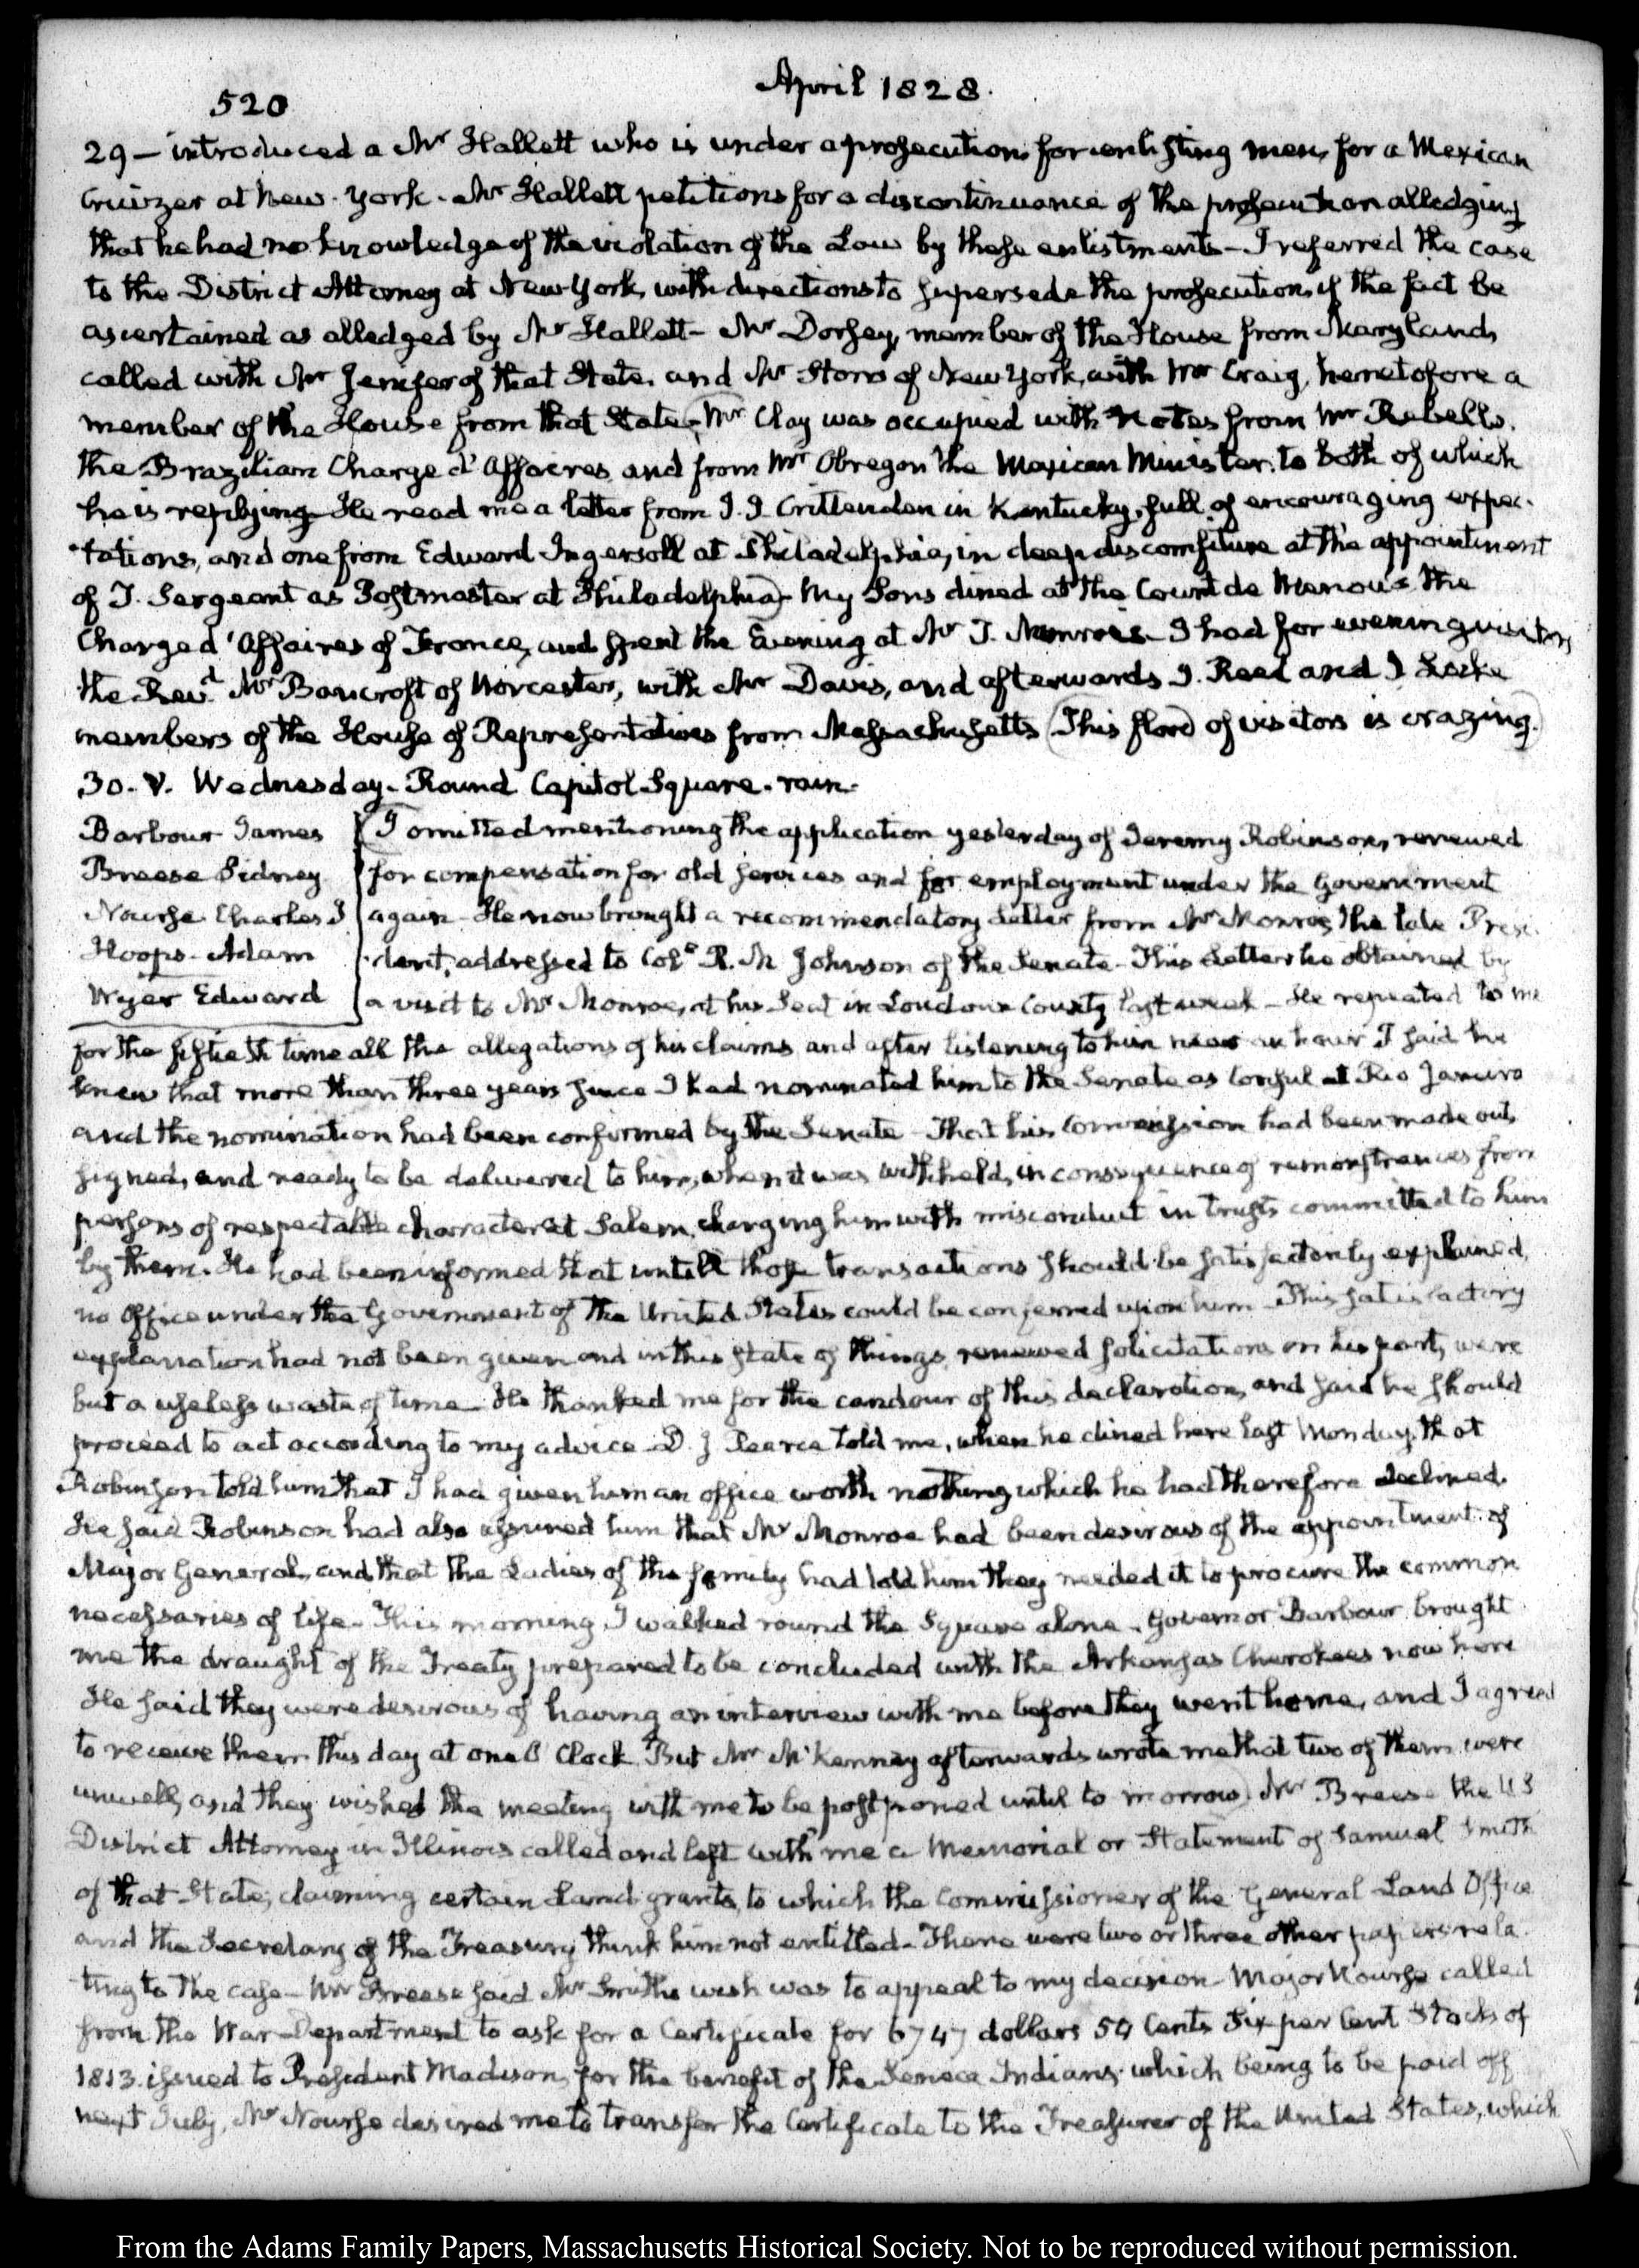 520
April 1828.
29 — introduced a Mr Hallett who is under a prosecution for enlisting men, for a Mexican
Cruizer at New-York. Mr Hallett petitions for a discontinuance of the prosecution alledging
that he had no knowledge of the violation of the Law by these enlistments — I referred the case
to the District Attorney at New York, with directions to supersede the prosecution, if the fact be
ascertained as alledged by Mr Hallett — Mr Dorsey, member of the House from Maryland,
called with Mr Jenifer of that State, and Mr Storrs of New York, with Mr Craig, heretofore a
member of the House from that State — Mr Clay was occupied with Notes from Mr Rebello,
the Brazilian Chargé d'Affaires, and from Mr Obregon the Mexican Minister, to both of which
he is replying — He read me a letter from J. J. Crittenden in Kentucky, full of encouraging expec-
-tations, and one from Edward Ingersoll at Philadelphia, in deep discomfiture at the appointment
of T. Sergeant as Postmaster at Philadelphia — My Sons dined at the Count de Menou's the
Chargé d'Affaires of France, and spent the Evening at Mr T. Munroe's — I had for evening visitors
the Revd. Mr Bancroft of Worcester, with Mr Davis, and afterwards J. Reed and J Locke
members of the House of Representatives from Massachusetts (This flood of visitors is crazing.)
30. V. Wednesday. Round Capitol Square. rain.
Barbour James
Breese Sidney
Nourse Charles J
Hoops Adam
Wyer Edward
I omitted mentioning the application yesterday of Jeremy Robinson, renewed
for compensation for old services and for employment under the Government
again — He now brought a recommendatory Letter from Mr Monroe, the late Presi-
-dent, addressed to Coll. R. M Johnson of the Senate — This Letter he obtained by
a visit to Mr Monroe, at his Seat in Loudoun County last week — He repeated to me
for the fiftieth time all the allegations of his claims and after listening to him near an hour I said he
knew that more than three years since I had nominated him to the Senate as Consul at Rio Janeiro
and the nomination had been confirmed by the Senate — That his Commission had been made out,
signed, and ready to be delivered to him, when it was withheld, in consequence of remonstrances from
persons of respectable character at Salem, charging him with misconduct in trusts committed to him
by them. He had been informed that untill those transactions should be satisfactorily explained,
no Office under the Government of the United States could be conferred upon him — This satisfactory
explanation had not been given and in this state of things, renewed solicitations on his part, were
but a useless waste of time — He thanked me for the candour of this declaration, and said he should
proceed to act according to my advice — D. J Pearce told me, when he dined here last Monday, that
Robinson told him that I had given him an office worth nothing which he had therefore declined.
He said Robinson had also assured him that Mr Monroe had been desirous of the appointment of
Major General, and that the Ladies of the family had told him they needed it to procure the common
necessaries of life — This morning I walked round the Square alone. Governor Barbour brought
me the draught of the Treaty prepared to be concluded with the Arkansas Cherokees now here
He said they were desirous of having an interview with me before they went home, and I agreed
to receive them this day at one O'Clock. But Mr McKenney afterwards wrote me that two of them were
unwell, and they wished the meeting with me to be postponed until to morrow) Mr Breese the U S
District Attorney in Illinois called and left with me a Memorial or Statement of Samuel Smith
of that State, claiming certain Land grants, to which the Commissioner of the General Land Office
and the Secretary of the Treasury think him not entitled — There were two or three other papers rela-
ting to the case — Mr Breese said Mr Smith's wish was to appeal to my decision — Major Nourse called
from the War Department to ask for a Certificate for 6747 dollars 54 Cents Six per Cent Stocks of
1813. issued to President Madison, for the benefit of the Seneca Indians, which being to be paid off
next July, Mr Nourse desired me to transfer the Certificate to the Treasurer of the United States, which
From the Adams Family Papers, Massachusetts Historical Society. Not to be reproduced without permission.